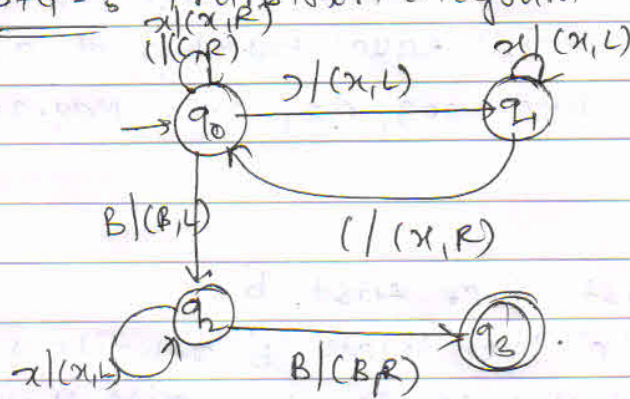 x|(x,R)
(|(,R)
)|(x,L)
x|(x,L)
q0
q1
B|(B,L)
(/(x,R)
q2
q3
x|(x,L)
B|(B,R)